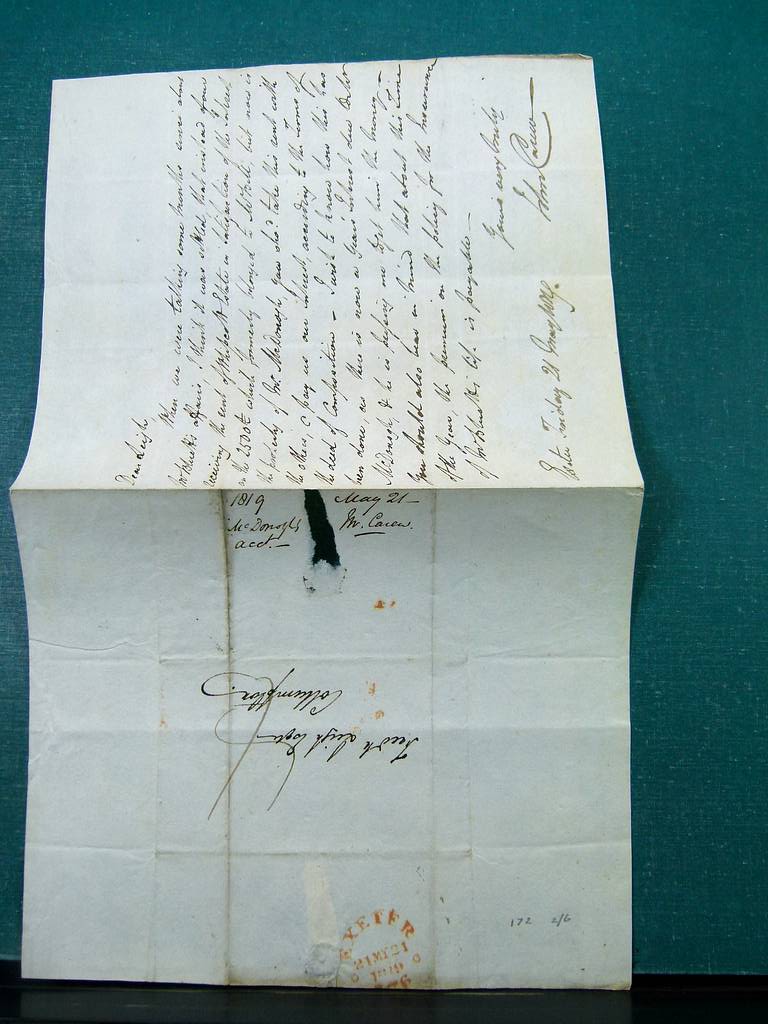 Dear Leigh,
When we were talking some months since about
Mr Bluett's affairs, I think it was settled that instead of our
receiving the rent of Estate in satisfaction of the Interest
on the 2500£ which formerly belonged to but now is
the property of Mr. McDonogh, you sho'd take this rent with
the others, & pay us our interest, according to the terms of
the deed of Composition - I wish to know how this has
been done, as there is now a years interest due to
McDonogh, & he is me to get him the money -
You should also bear in mind that about this time
of the year, the premium on the policy for the Insurance
of Mr Bluett's life is payable -
Yours very truly
John Carew
Exeter Friday 21 May 1819.
1819 May 21 -
McDonogh's Mr. Carew.
acct. -
Leigh Esqr
Collumpton.
EXETER
21 MY 21
1819
176
172 2/6